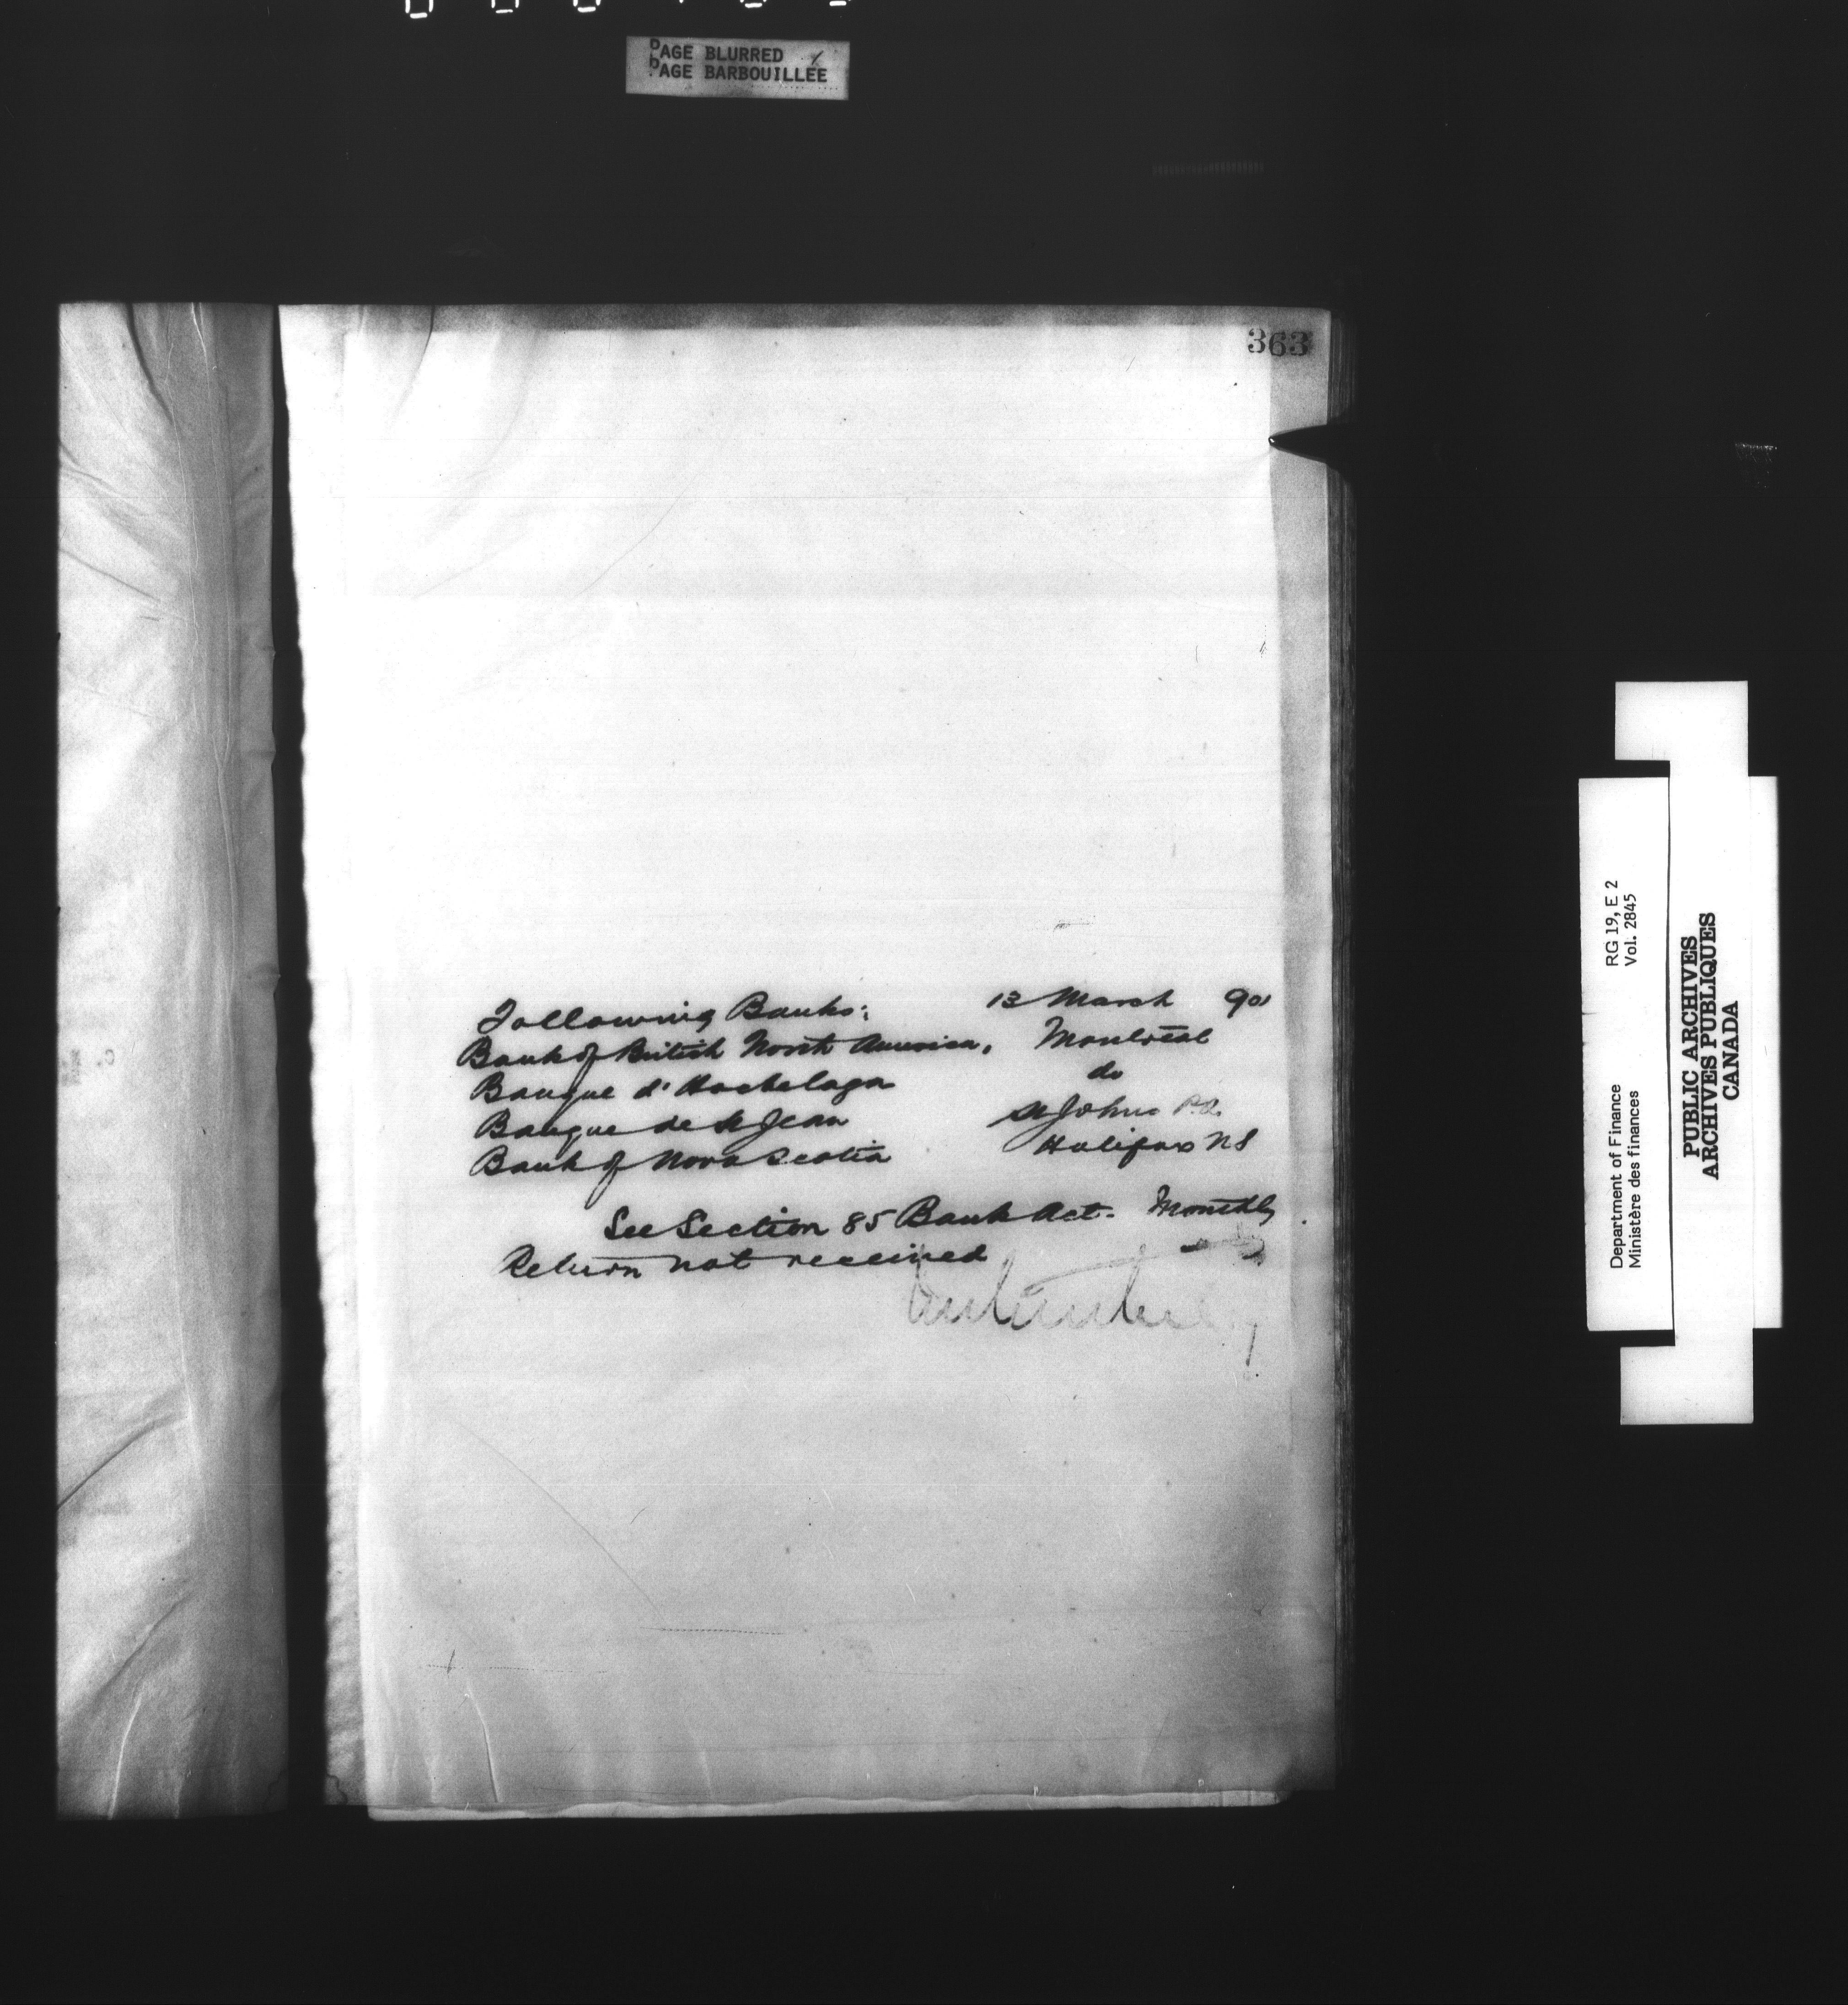 PAGE BLURRED
PAGE BARBOUILLEE
363
Following Banks: 13 March 901
Bank of British North America, Montreal
Banque d'Hochelaga do
Banque de St Jean St Johns P.Q.
Bank of Nova Scotia Halifax NS
See Section 85 Bank Act. Monthly
Return not received
Department of Finance RG 19, E 2
Ministère des finances Vol. 2845
PUBLIC ARCHIVES
ARCHIVES PUBLIQUES
CANADA